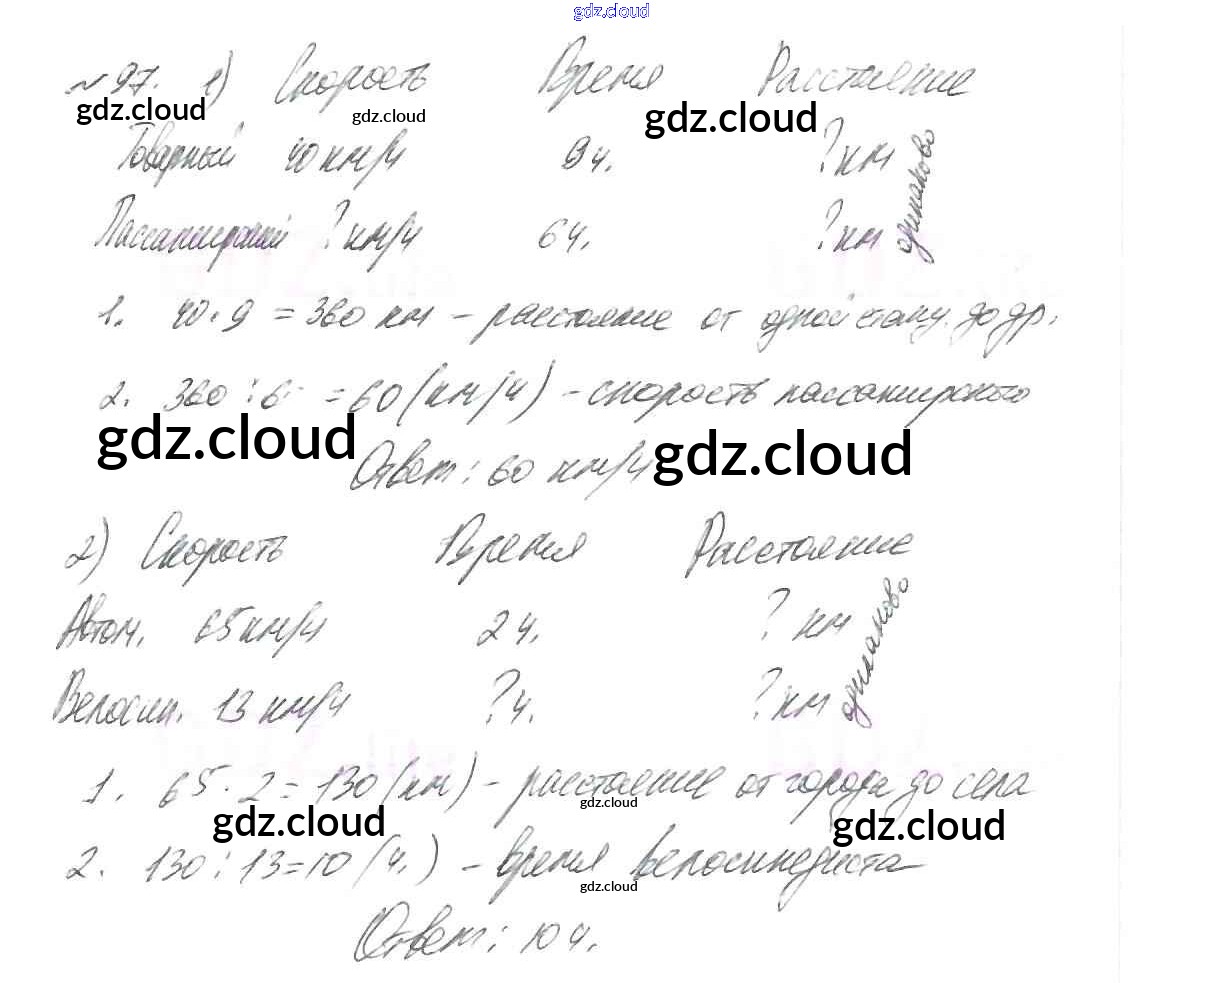 gdz.cloud
№97. 1) Скорость Время Расстояние
gdz.cloud gdz.cloud gdz.cloud
Товарный 40 км/ч 9ч. ? км
одинаково
Пассажирский ? км/ч 6ч. ? км
1. 40·9 = 360 км – расстояние от одной станц. до др.
2. 360 : 6 = 60 (км/ч) – скорость пассажирского
gdz.cloud gdz.cloud
Ответ: 60 км/ч
2) Скорость Время Расстояние
Автом. 65 км/ч 2 ч. ? км
одинаково
Велосип. 13 км/ч ? ч. ? км
1. 65 · 2 = 130 (км) – расстояние от города до села
gdz.cloud gdz.cloud gdz.cloud
2. 130 : 13 = 10 (ч.) – время велосипедиста
gdz.cloud
Ответ: 10 ч.